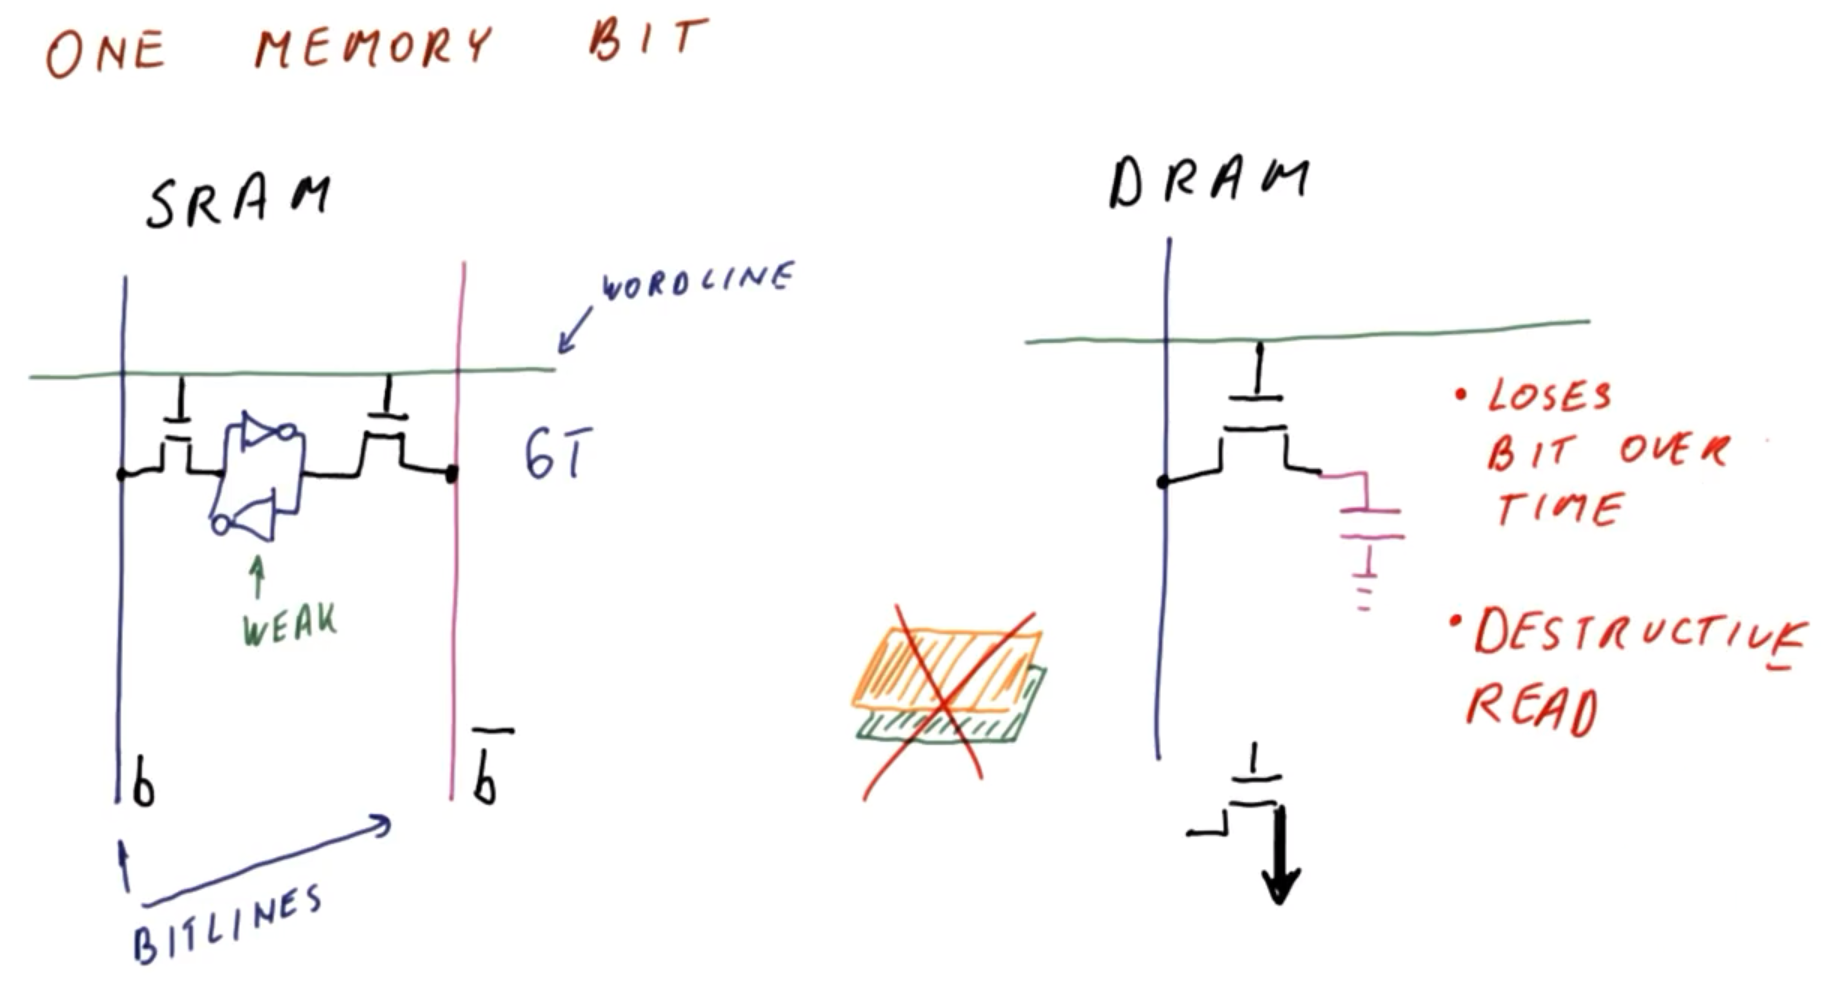 ONE MEMORY BIT
SRAM
WORDLINE
6T
WEAK
b
b̅
BITLINES
DRAM
• LOSES
BIT OVER
TIME
• DESTRUCTIVE
READ